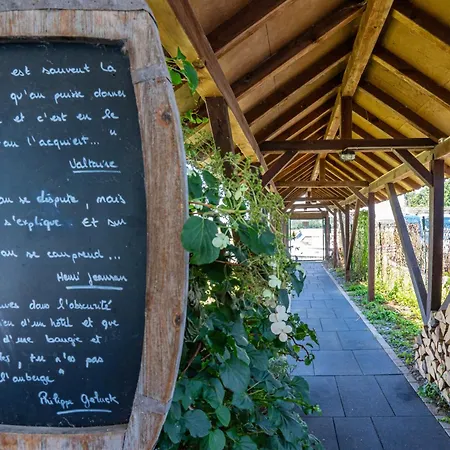 est souvent la
qu'on puisse donner
et c'est en le
on l'acquiert...
Voltaire
on se dispute, mais
s'explique. Et on
on se comprend...
Henri Jeanson
dans l'obscurité
d'un hôtel et que
d'une bougie et
, tu n'es pas
l'auberge"
Philippe Geluck